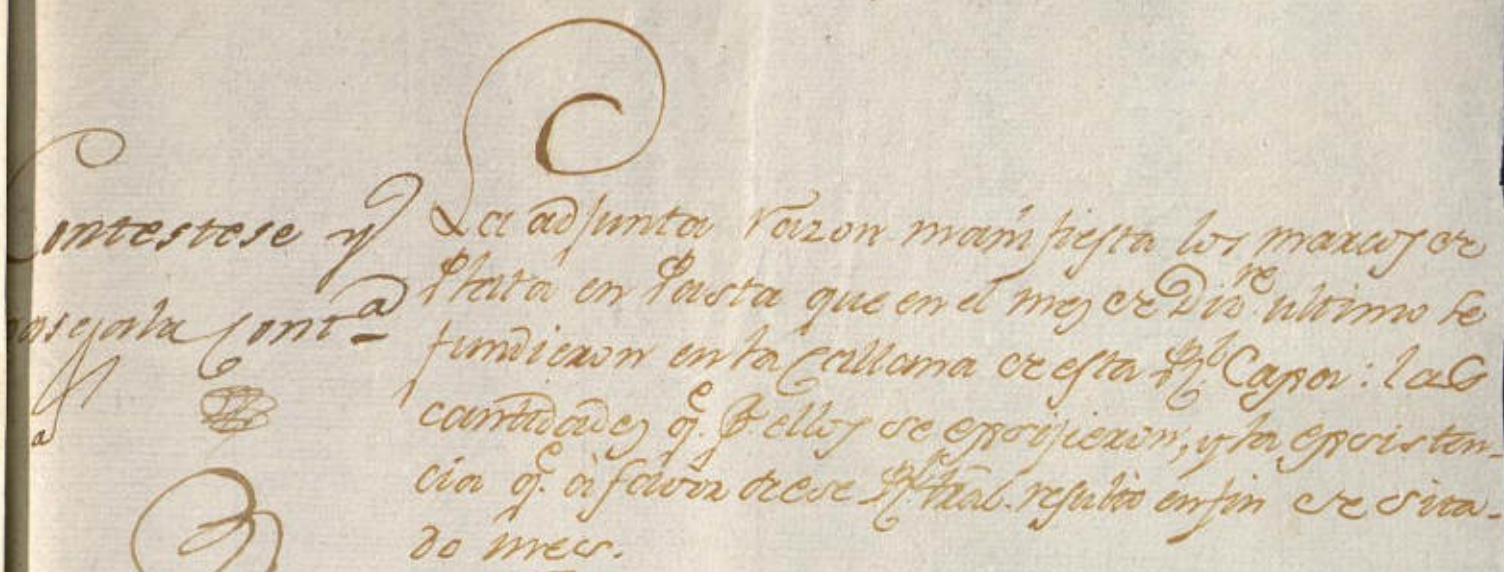 Contestese y
pasea la Cont.a
La adjunta razon manifiesta los marcos de
Plata en Pasta que en el mes de Diz.re ultimo se
fundieron en la Callana de esta R.l Caxa: las
cantidades q.e p.r ellos se exsijieron, y la exsisten-
cia q.e à favòr de ese R.l Tral. resultò en fin de cita-
do mes.